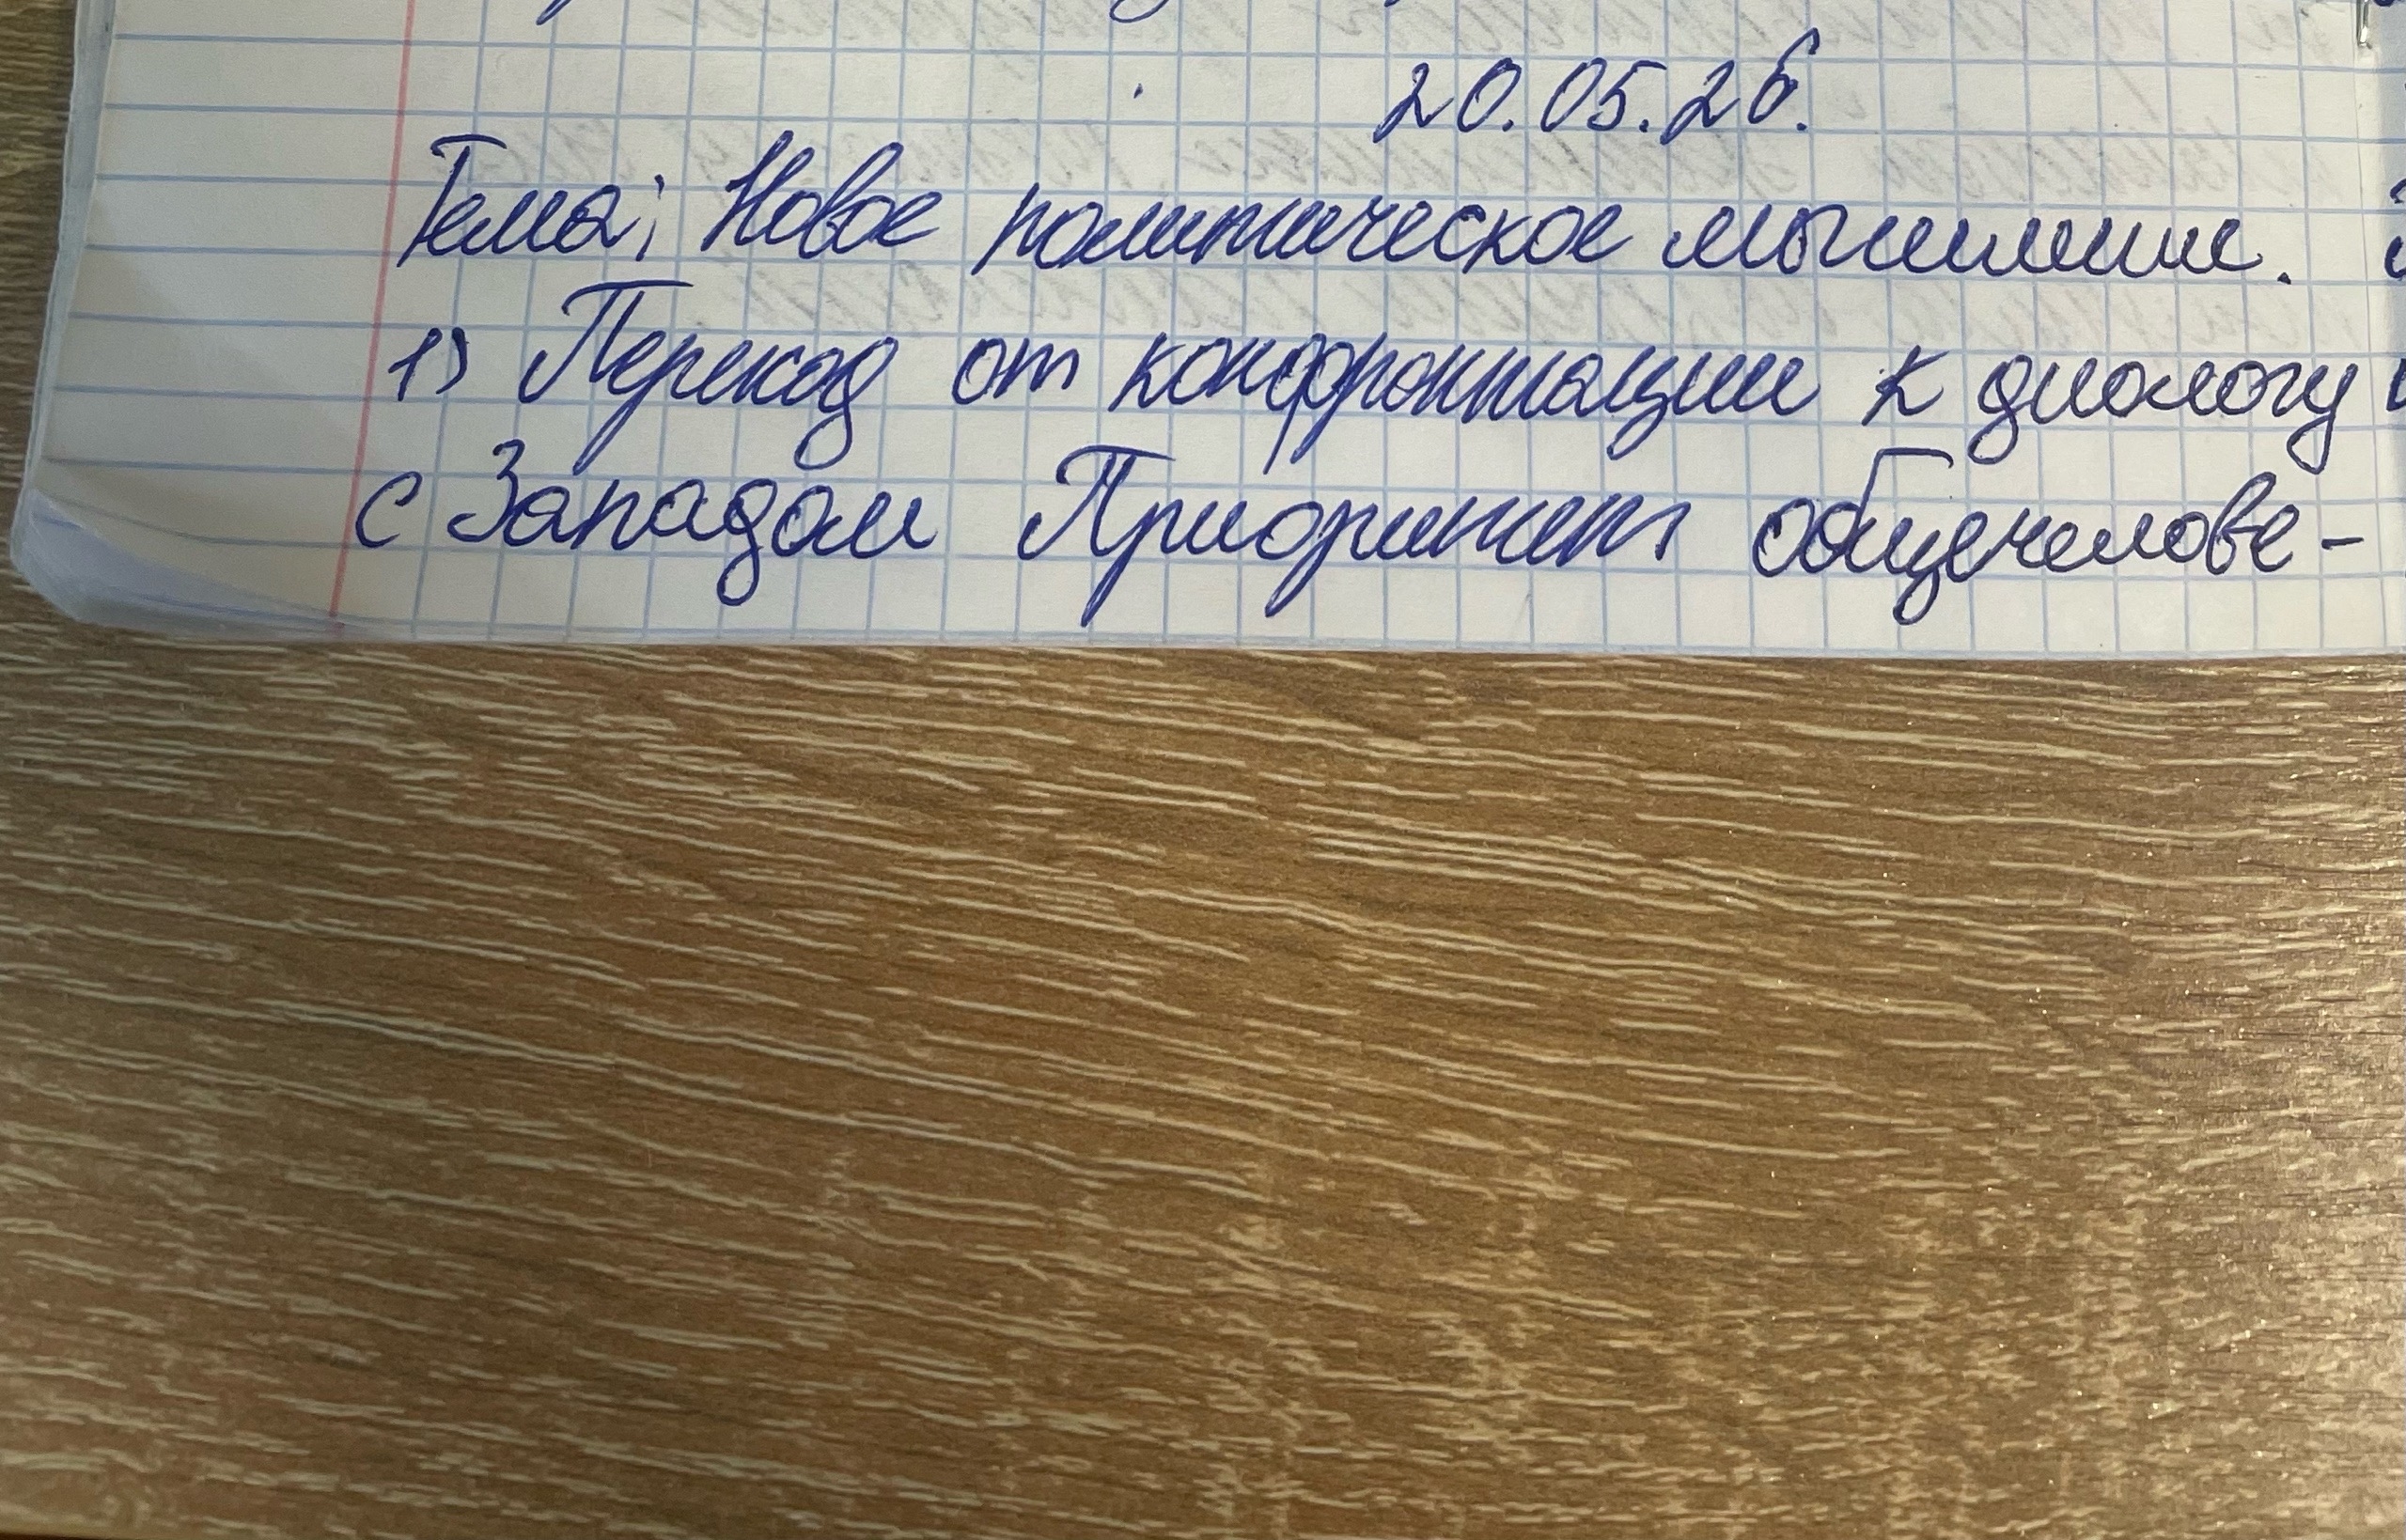 20.05.26.
Тема: Новое политическое мышление.
1) Переход от конфронтации к диологу
с Западом Приоритет общечелове-